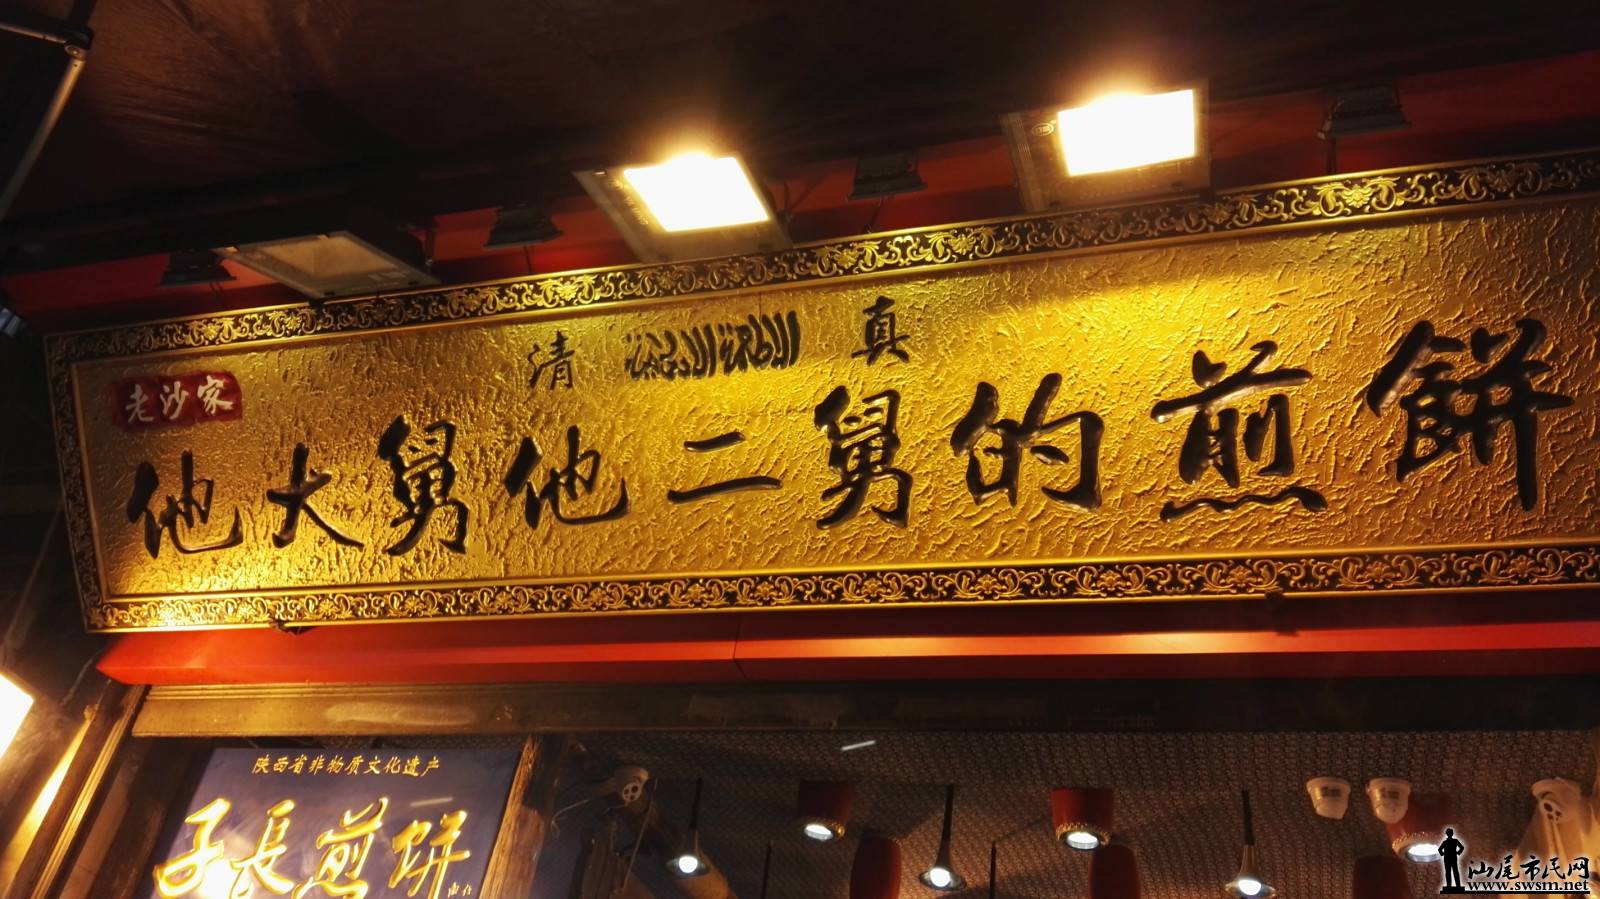 清 真
老沙家
他大舅他二舅的煎餅
陕西省非物质文化遗产
子長煎饼
汕尾市民网
www.swsm.net